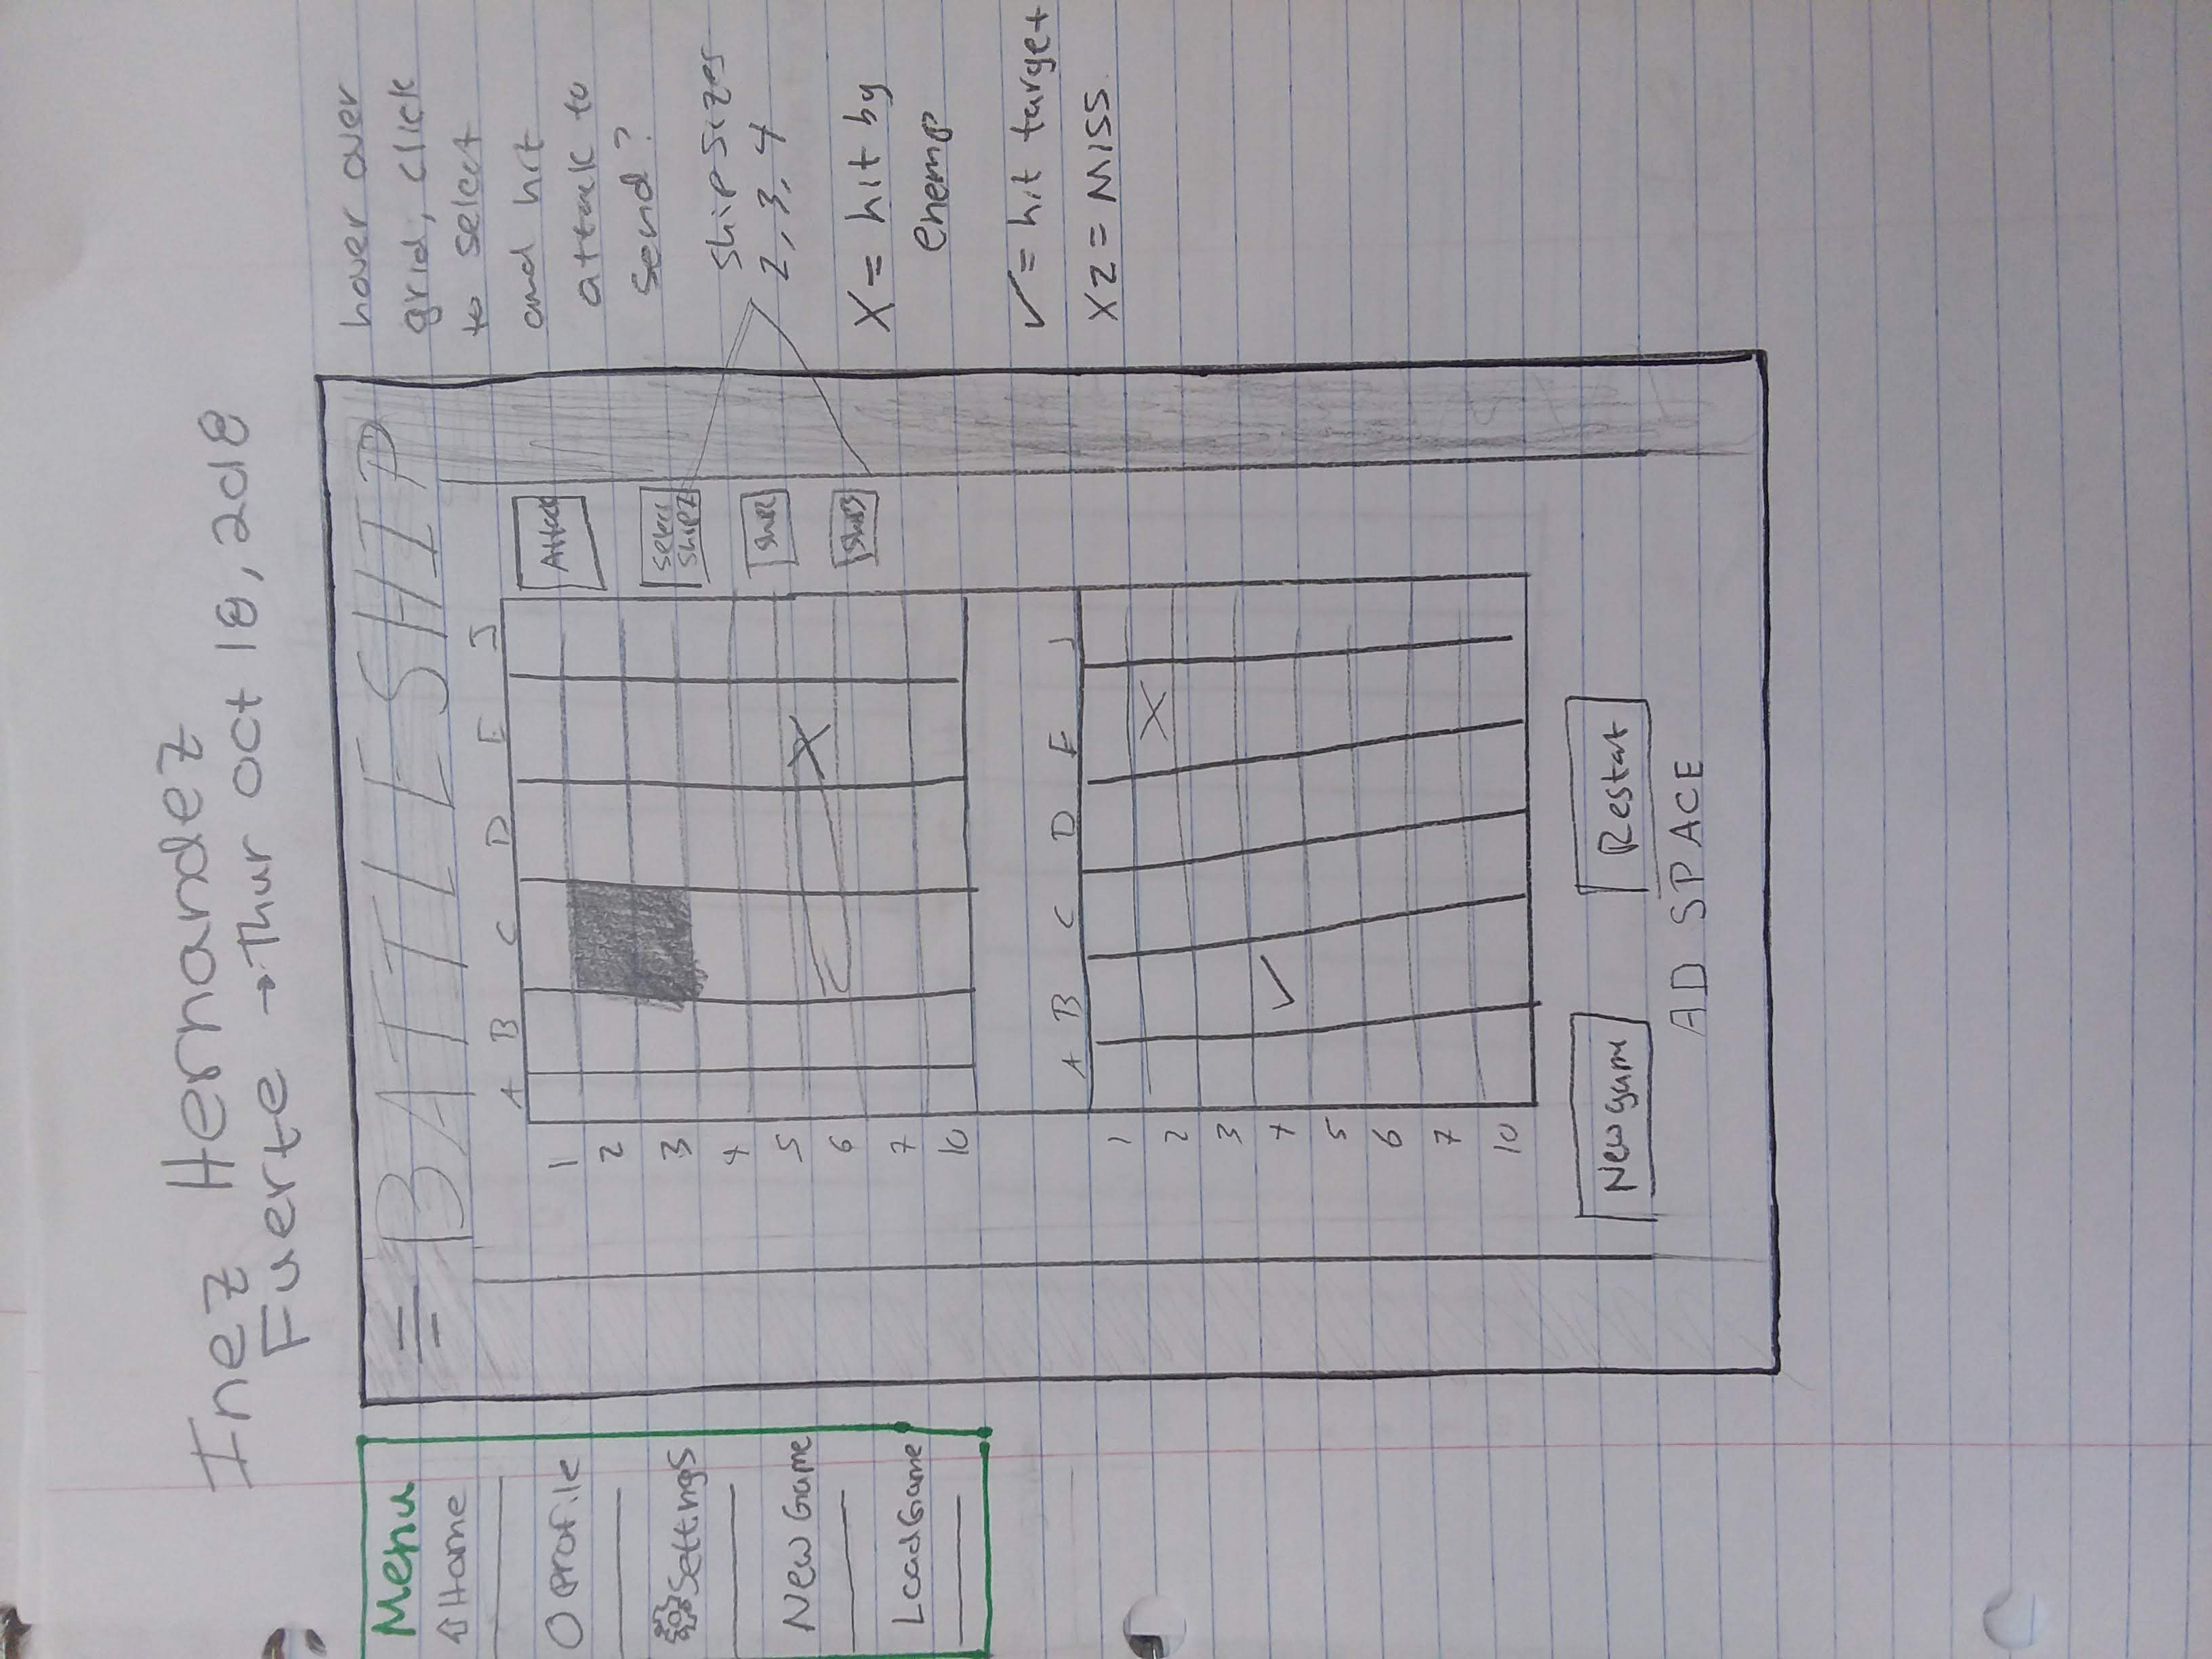 Inez Hernandez
Fuerte → Thur Oct 18, 2018
Menu
Home
Profile
Settings
New Game
Load Game
BATTLESHIP
A B C D E J
1
2
3
4
5
6
7
10
X
Attack
Select
Ship1
Ship2
Ship3
A B C D E J
1
2
3
4
5
6
7
10
X
✓
New game
Restat
AD SPACE
hover over
grid, click
to select
and hit
attack to
send?
Ship Sizes
2, 3, 4
X = hit by
enemy
✓ = hit target
X2 = MISS